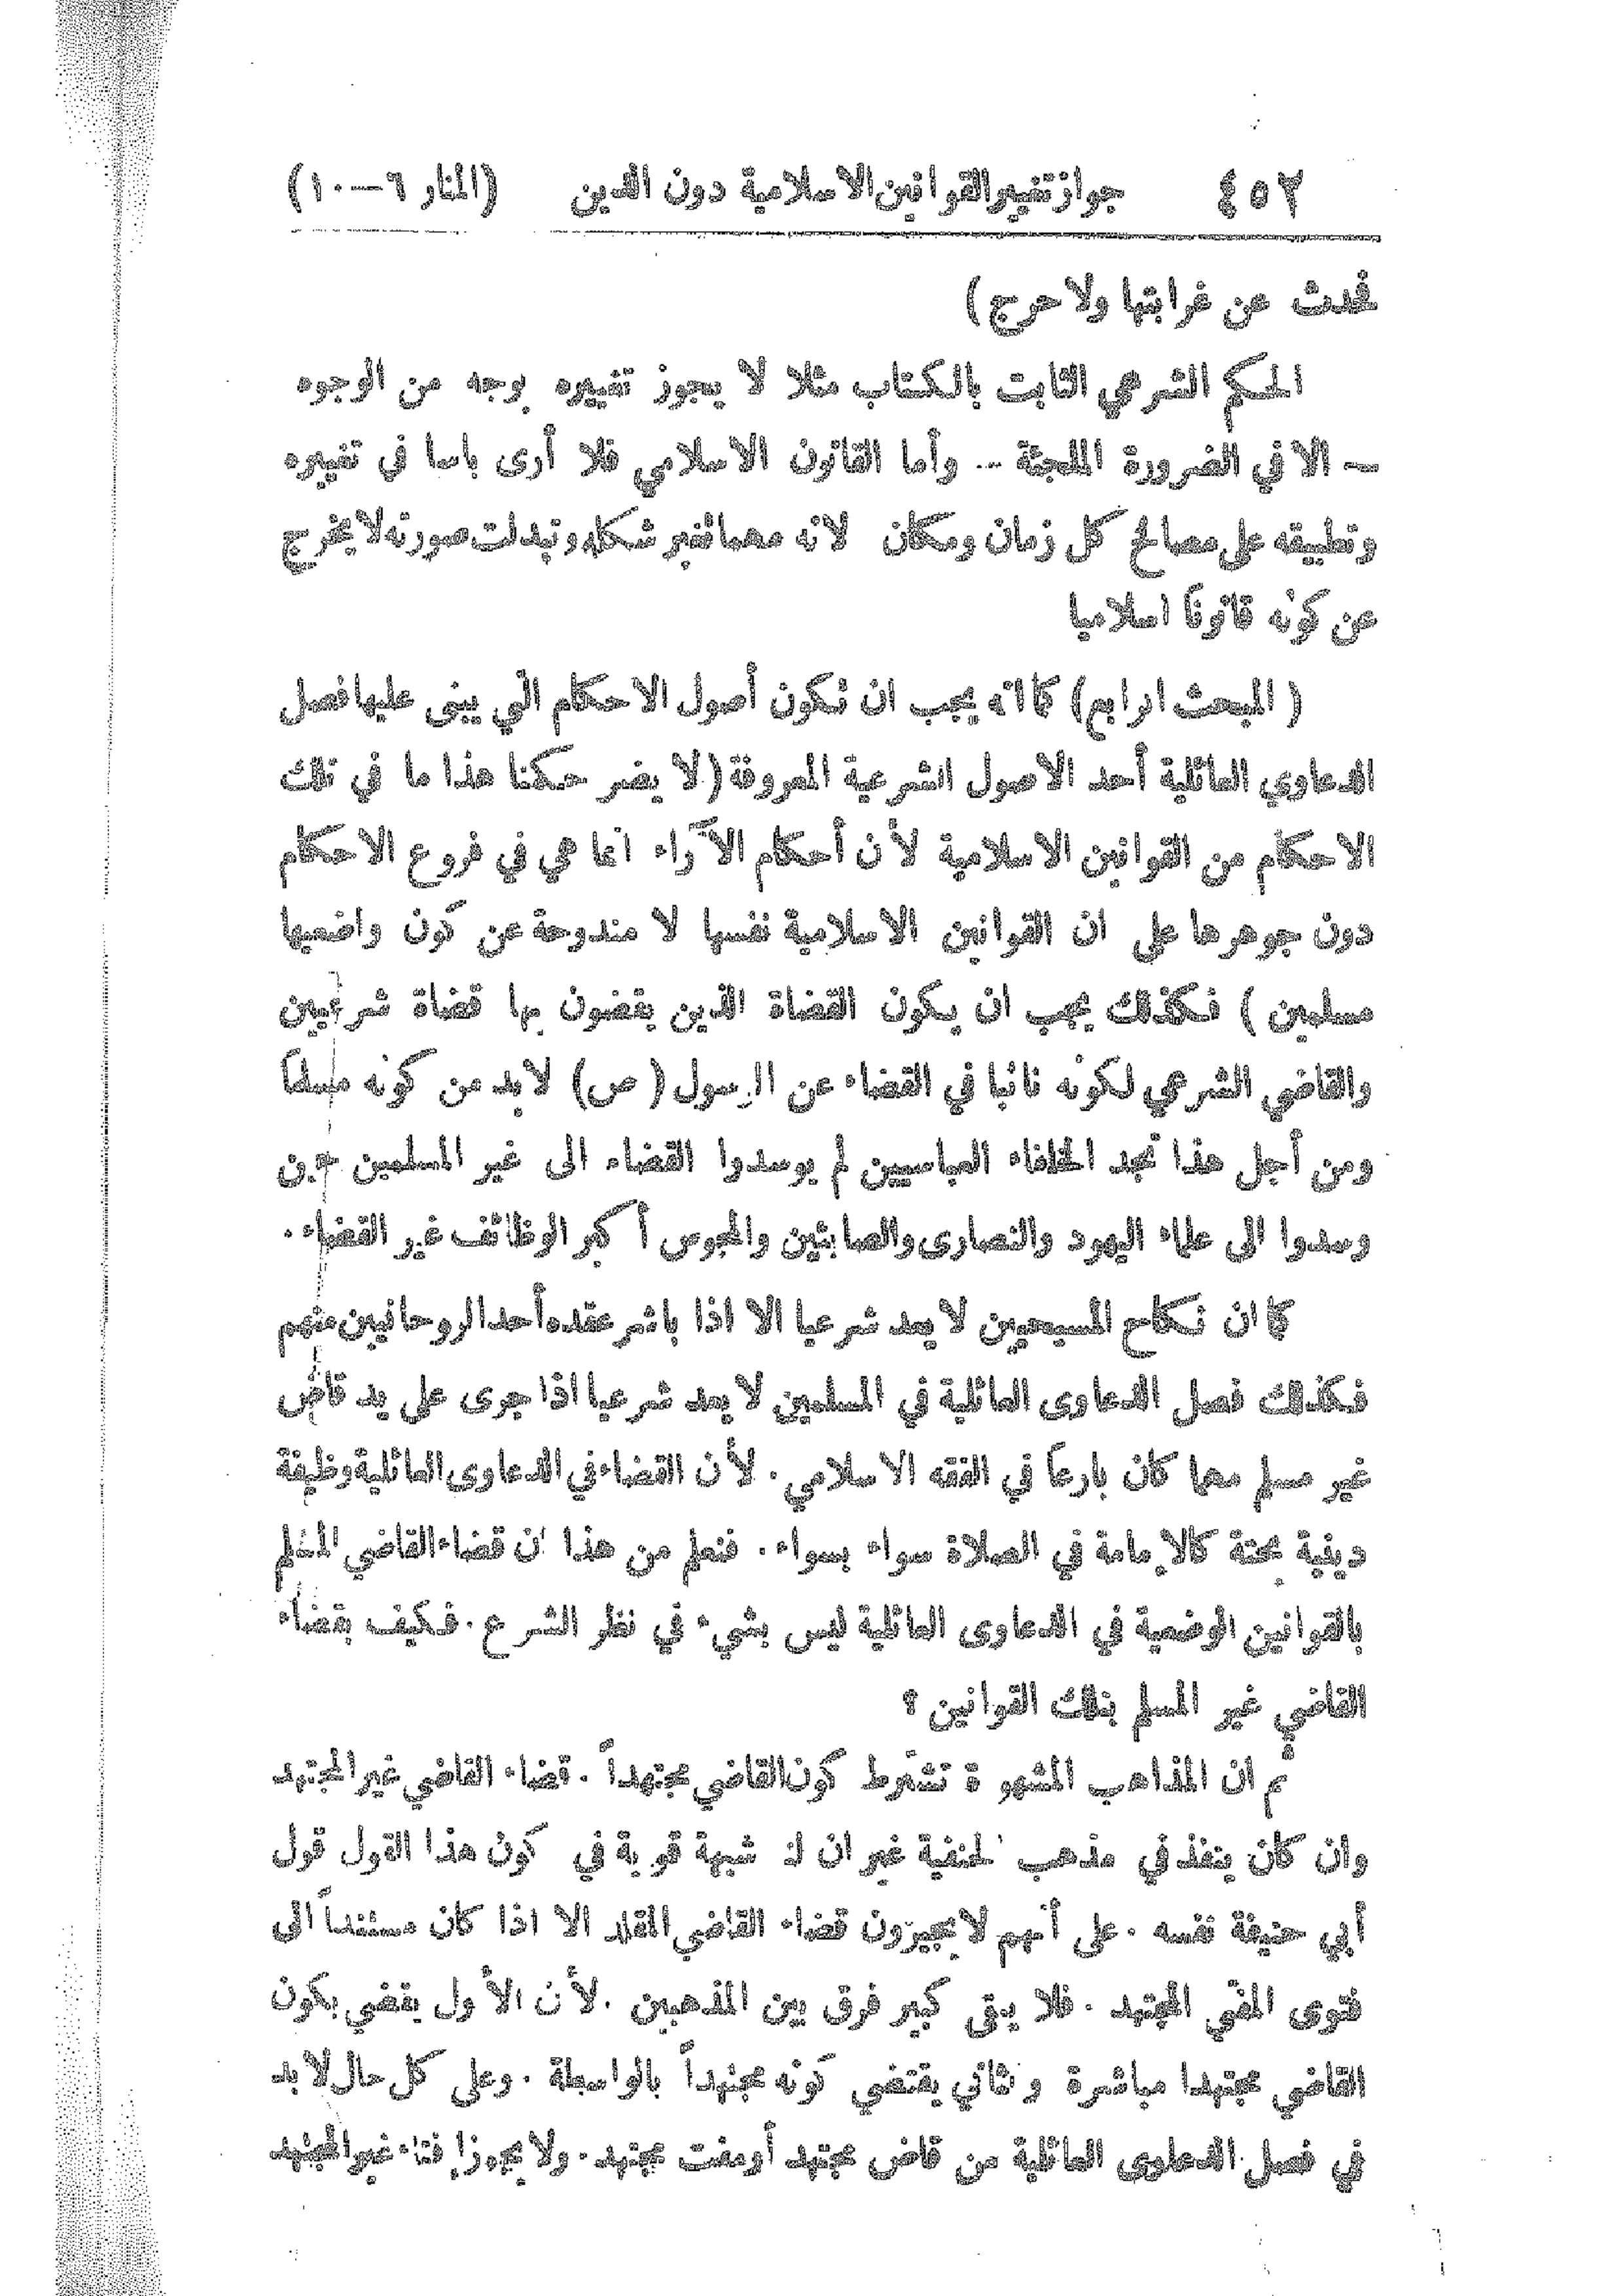 ٤٥٢ جواز تغيير القوانين الاسلامية دون الدين (المنار ٦—١٠)
فحدث عن غرابتها ولا حرج )
الحكم الشرعي الثابت بالكتاب مثلا لا يجوز تغييره بوجه من الوجوه
— الا في الضرورة الملجئة — وأما القانون الاسلامي فلا أرى باسا في تغييره
وتطبيقه على مصالح كل زمان ومكان لانه مهما تغير شكله وتبدلت صورته لا يخرج
عن كونه قانوناً اسلاميا
( المبحث الرابع) كما انه يجب ان تكون أصول الاحكام التي يبنى عليها فصل
الدعاوي العائلية أحد الاصول الشرعية المعروفة (لا يضر حكمنا هذا ما في تلك
الاحكام من القوانين الاسلامية لأن أحكام الآراء انما هي في فروع الاحكام
دون جوهرها على ان القوانين الاسلامية نفسها لا مندوحة عن كون واضعيها
مسلمين ) فكذلك يجب ان يكون القضاة الذين يقضون بها قضاة شرعيين
والقاضي الشرعي لكونه نائبا في القضاء عن الرسول ( ص) لا بد من كونه مسلماً
ومن أجل هذا نجد الخلفاء العباسيين لم يوسدوا القضاء الى غير المسلمين حين
وسدوا الى علماء اليهود والنصارى والصابئين والمجوس أكبر الوظائف غير القضاء.
كما ان نكاح المسيحيين لا يعد شرعيا الا اذا باشر عقده أحد الروحانيين منهم
فكذلك فصل الدعاوى العائلية في المسلمين لا يعد شرعيا اذا جرى على يد قاض
غير مسلم مهما كان بارعاً في الفقه الاسلامي. لأن القضاء في الدعاوى العائلية وظيفة
دينية بحتة كالإمامة في الصلاة سواء بسواء. فنعلم من هذا ان قضاء القاضي المسلم
بالقوانين الوضعية في الدعاوى العائلية ليس بشيء في نظر الشرع. فكيف بقضاء
القاضي غير المسلم بتلك القوانين ؟
ثم ان المذاهب المشهو ة تشترط كون القاضي مجتهداً. قضاء القاضي غير المجتهد
وان كان ينفذ في مذهب الحنفية غير ان لنا شبهة قوية في كون هذا القول قول
أبي حنيفة نفسه. على أنهم لا يجيزون قضاء القاضي المقلد الا اذا كان مستنداً الى
فتوى المفتي المجتهد. فلا يبقى كبير فرق بين المذهبين. لأن الأول يقضي بكون
القاضي مجتهدا مباشرة والثاني يقتضي كونه مجتهداً بالواسطة. وعلى كل حال لا بد
في فصل الدعاوى العائلية من قاض مجتهد أو مفت مجتهد. ولا يجوز إفتاء غير المجتهد